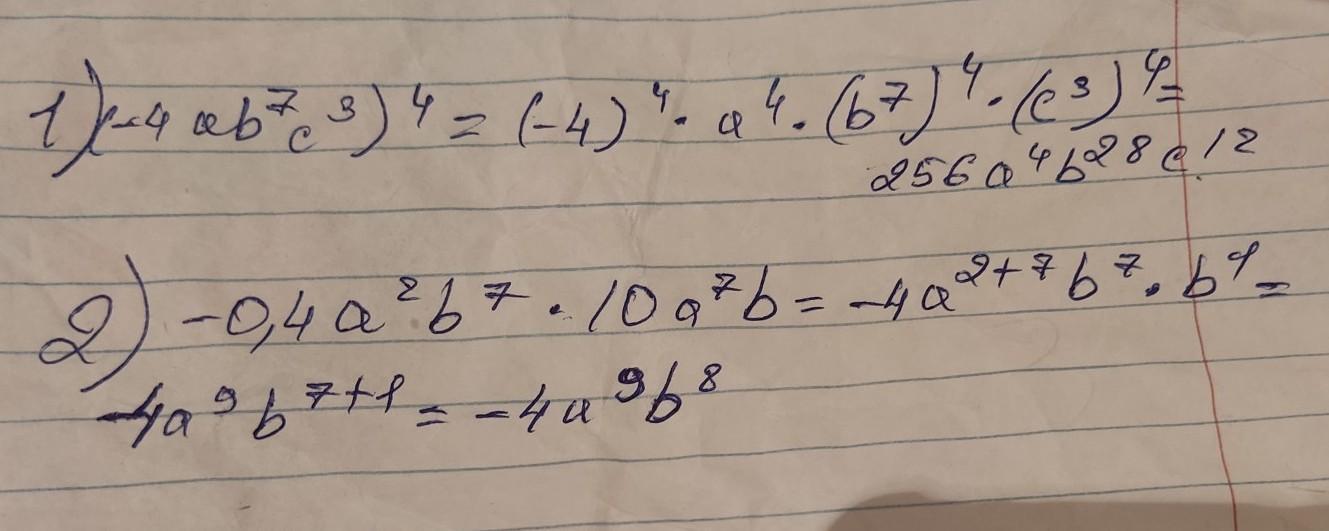 1) (-4ab⁷c³)⁴ = (-4)⁴ · a⁴ · (b⁷)⁴ · (c³)⁴ =
256a⁴b²⁸c¹²
2) -0,4a²b⁷ · 10a⁷b = -4a²⁺⁷b⁷ · b¹ =
-4a⁹b⁷⁺¹ = -4a⁹b⁸